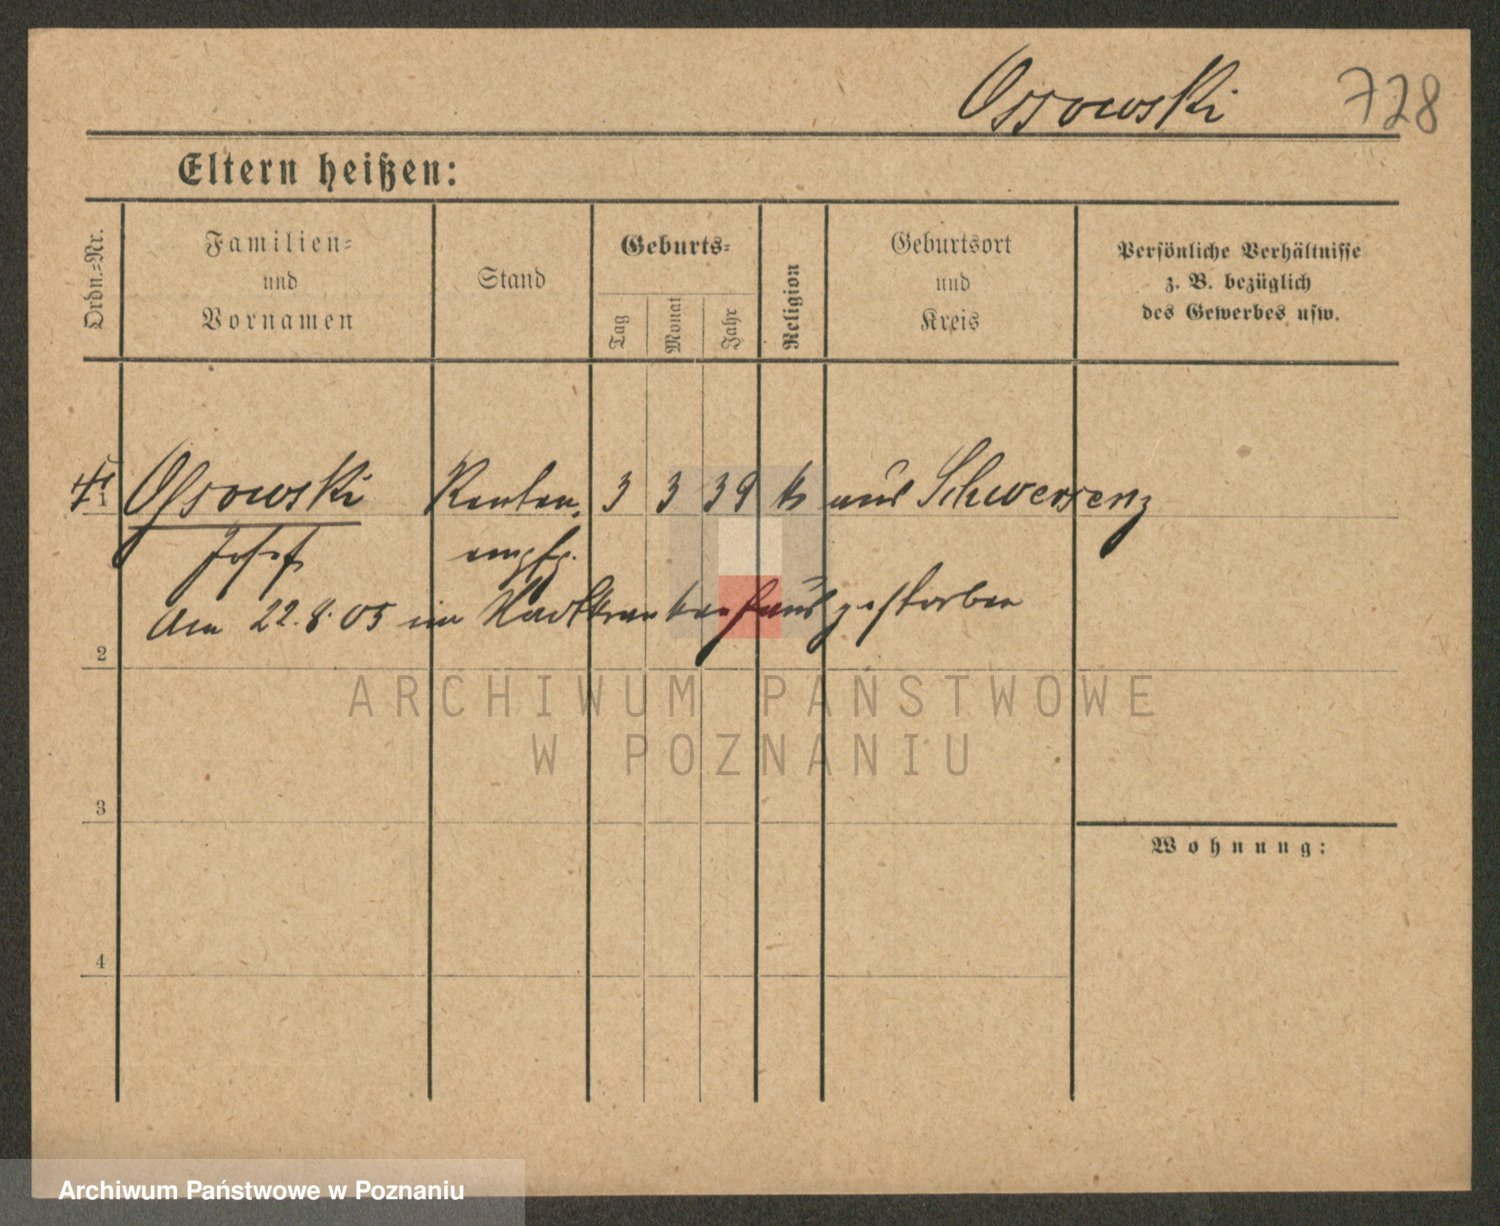 Ossowski 728
Eltern heißen:
Ordn.=Nr.
Familien=
und
Vornamen
Stand
Geburts=
Tag
Monat
Jahr
Religion
Geburtsort
und
Kreis
Persönliche Verhältnisse
z. B. bezüglich
des Gewerbes usw.
1 Ossowski Renten 3 3 39 k aus Schwersenz
Josef empfg.
Am 22.8.05 im Stadtkrankenhaus gestorben
2
ARCHIWUM PAŃSTWOWE
W POZNANIU
3
Wohnung:
4
Archiwum Państwowe w Poznaniu